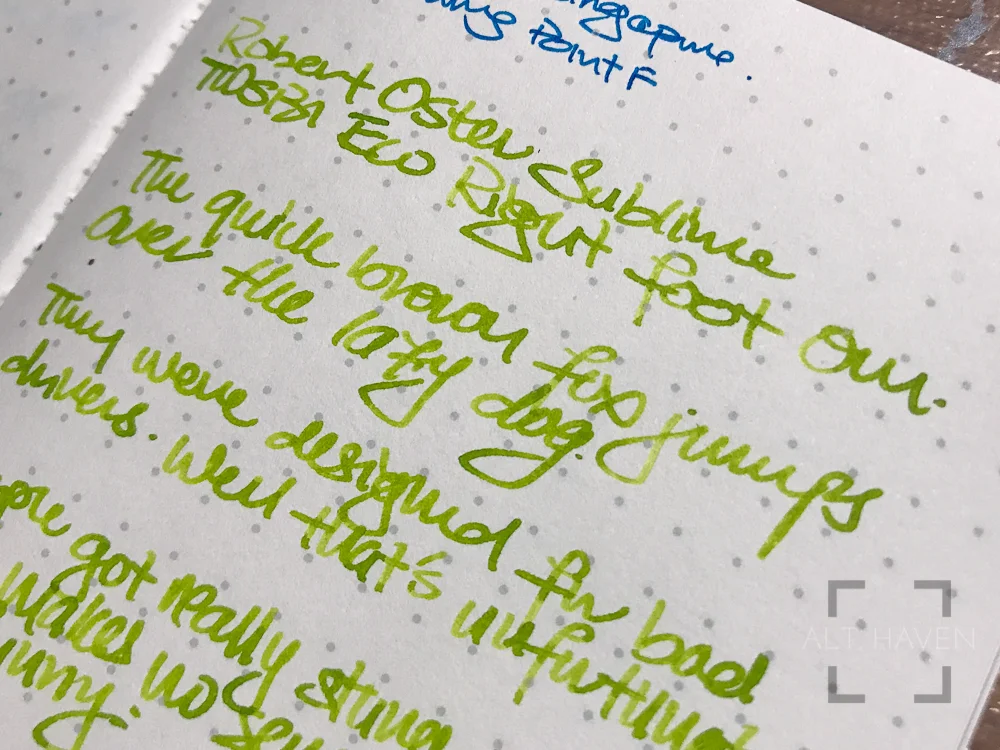 Point F
Robert Oster Sublime
TWSBI Eco Right foot Oui.
The quick brown fox jumps
over the lazy dog.
They were designed for bad
drivers. Well that's
got really strong
makes no
ALT. HAVEN